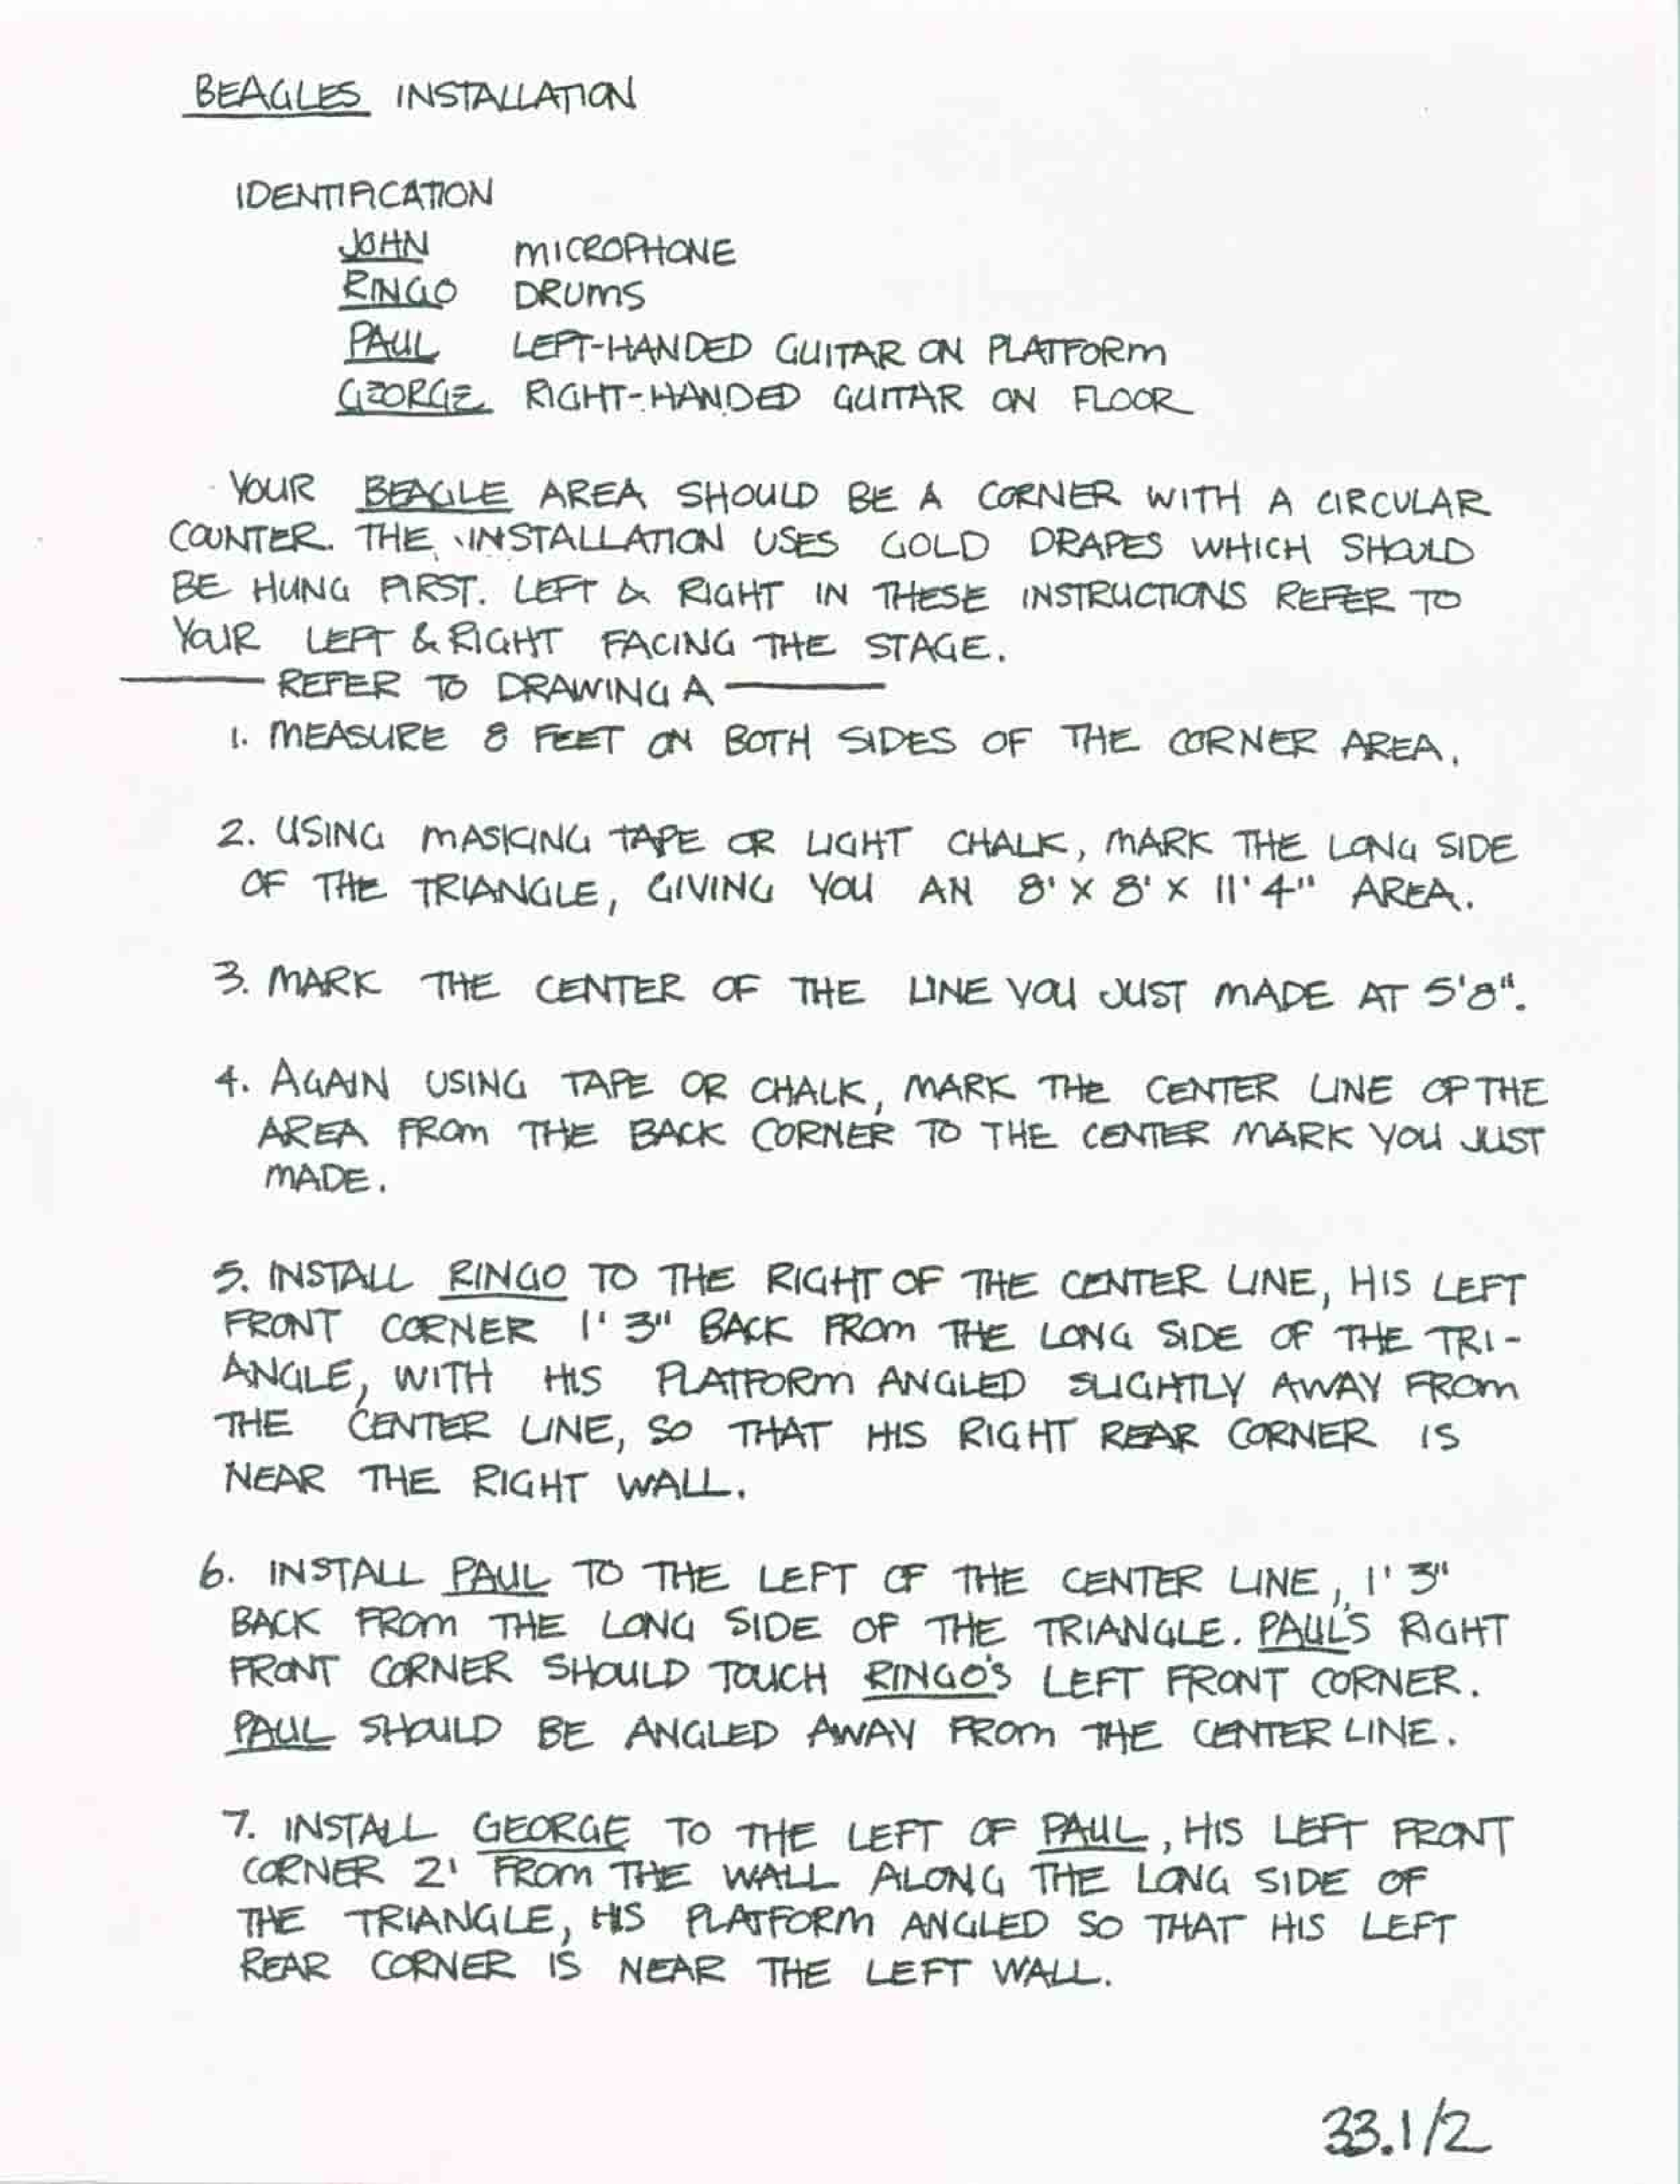 BEAGLES INSTALLATION
IDENTIFICATION
JOHN MICROPHONE
RINGO DRUMS
PAUL LEFT-HANDED GUITAR ON PLATFORM
GEORGE RIGHT-HANDED GUITAR ON FLOOR
YOUR BEAGLE AREA SHOULD BE A CORNER WITH A CIRCULAR
COUNTER. THE INSTALLATION USES GOLD DRAPES WHICH SHOULD
BE HUNG FIRST. LEFT & RIGHT IN THESE INSTRUCTIONS REFER TO
YOUR LEFT & RIGHT FACING THE STAGE.
REFER TO DRAWING A
1. MEASURE 8 FEET ON BOTH SIDES OF THE CORNER AREA.
2. USING MASKING TAPE OR LIGHT CHALK, MARK THE LONG SIDE
OF THE TRIANGLE, GIVING YOU AN 8' X 8' X 11' 4" AREA.
3. MARK THE CENTER OF THE LINE YOU JUST MADE AT 5'8".
4. AGAIN USING TAPE OR CHALK, MARK THE CENTER LINE OF THE
AREA FROM THE BACK CORNER TO THE CENTER MARK YOU JUST
MADE.
5. INSTALL RINGO TO THE RIGHT OF THE CENTER LINE, HIS LEFT
FRONT CORNER 1' 3" BACK FROM THE LONG SIDE OF THE TRI-
ANGLE, WITH HIS PLATFORM ANGLED SLIGHTLY AWAY FROM
THE CENTER LINE, SO THAT HIS RIGHT REAR CORNER IS
NEAR THE RIGHT WALL.
6. INSTALL PAUL TO THE LEFT OF THE CENTER LINE, 1' 3"
BACK FROM THE LONG SIDE OF THE TRIANGLE. PAUL'S RIGHT
FRONT CORNER SHOULD TOUCH RINGO'S LEFT FRONT CORNER.
PAUL SHOULD BE ANGLED AWAY FROM THE CENTER LINE.
7. INSTALL GEORGE TO THE LEFT OF PAUL, HIS LEFT FRONT
CORNER 2' FROM THE WALL ALONG THE LONG SIDE OF
THE TRIANGLE, HIS PLATFORM ANGLED SO THAT HIS LEFT
REAR CORNER IS NEAR THE LEFT WALL.
33.1/2